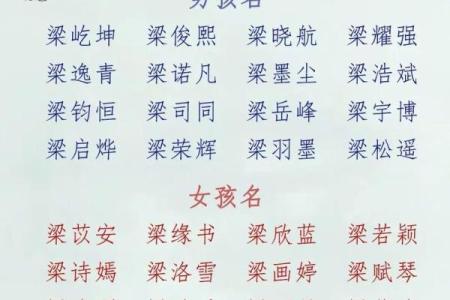 男孩名
梁屹坤 梁俊熙 梁晓航 梁耀强
梁逸青 梁诺凡 梁墨尘 梁浩斌
梁钧恒 梁司同 梁岳峰 梁宇博
梁启烨 梁荣辉 梁羽墨 梁松遥
女孩名
梁苡安 梁缘书 梁欣蓝 梁若颖
梁诗嫣 梁洛雪 梁画婷 梁赋琴